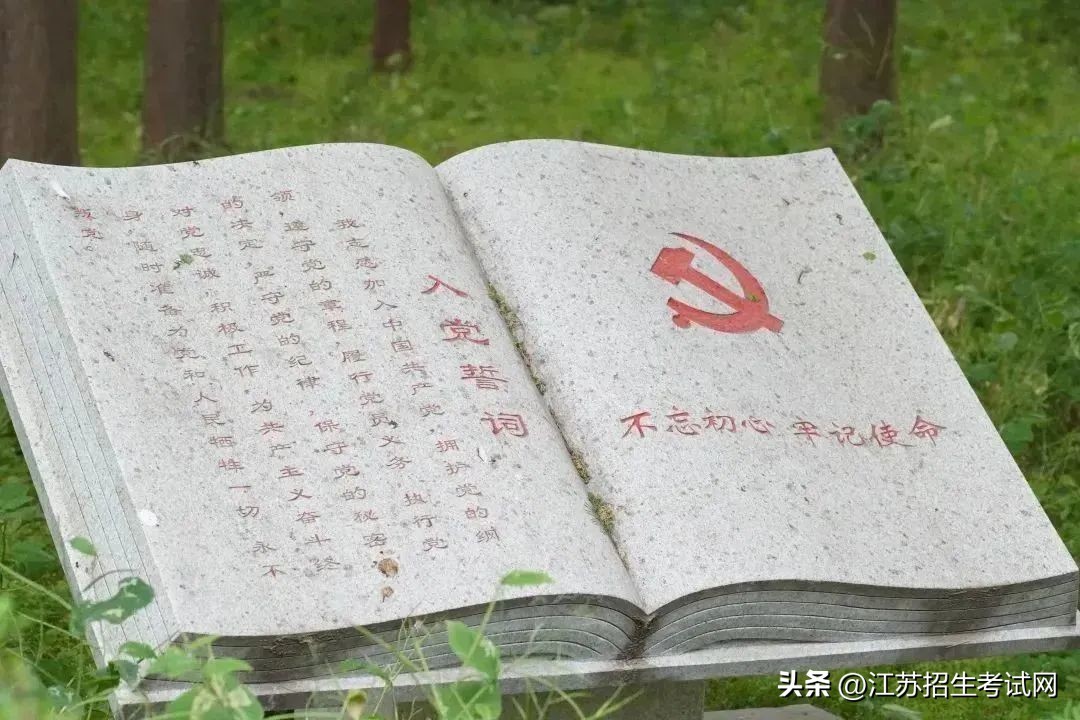 入党誓词
我志愿加入中国共产党，拥护党的纲
领，遵守党的章程，履行党员义务，执行党
的决定，严守党的纪律，保守党的秘密，
对党忠诚，积极工作，为共产主义奋斗终
身，随时准备为党和人民牺牲一切，永不
叛党。
不忘初心 牢记使命
头条 @江苏招生考试网